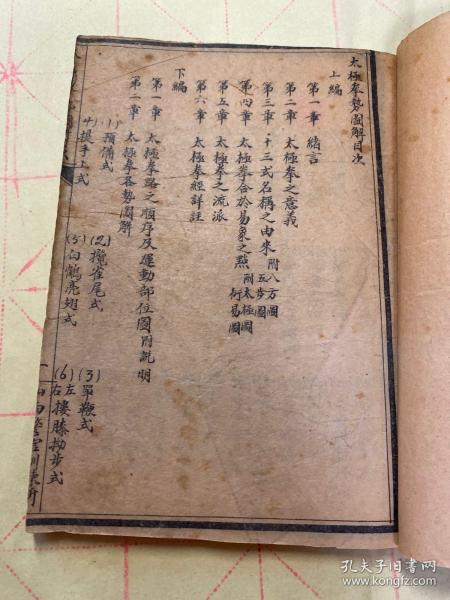 太極拳勢圖解目次
上編
第一章 緒言
第二章 太極拳之意義
第三章 十三式名稱之由來附八方圖五步圖
第四章 太極拳合於易象之點附太極圖衍易圖
第五章 太極拳之流派
第六章 太極拳經詳註
下編
第一章 太極拳路之順序及運動部位圖附說明
第二章 太極拳各勢圖解
(1)預備式 (2)攬雀尾式 (3)單鞭式
(4)提手上式 (5)白鶴亮翅式 (6)左右摟膝拗步式
孔夫子旧书网
www.kongfz.com